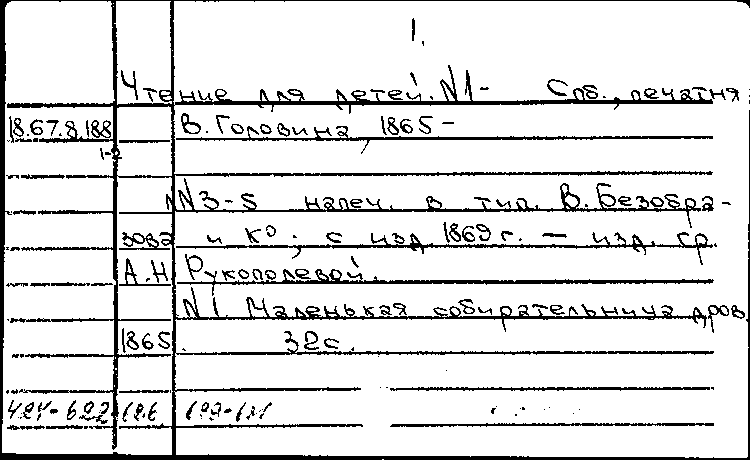 1.
Чтение для детей. N1- Спб., печатня
18.67.8.188 В. Головина, 1865 -
1-2
NN3-5 напеч. в тип. В. Безобра-
зова и К°; с изд. 1869 г. — изд. гр.
А.Н. Рукополевой.
N1. Маленькая собирательница дров.
1865. 32с.